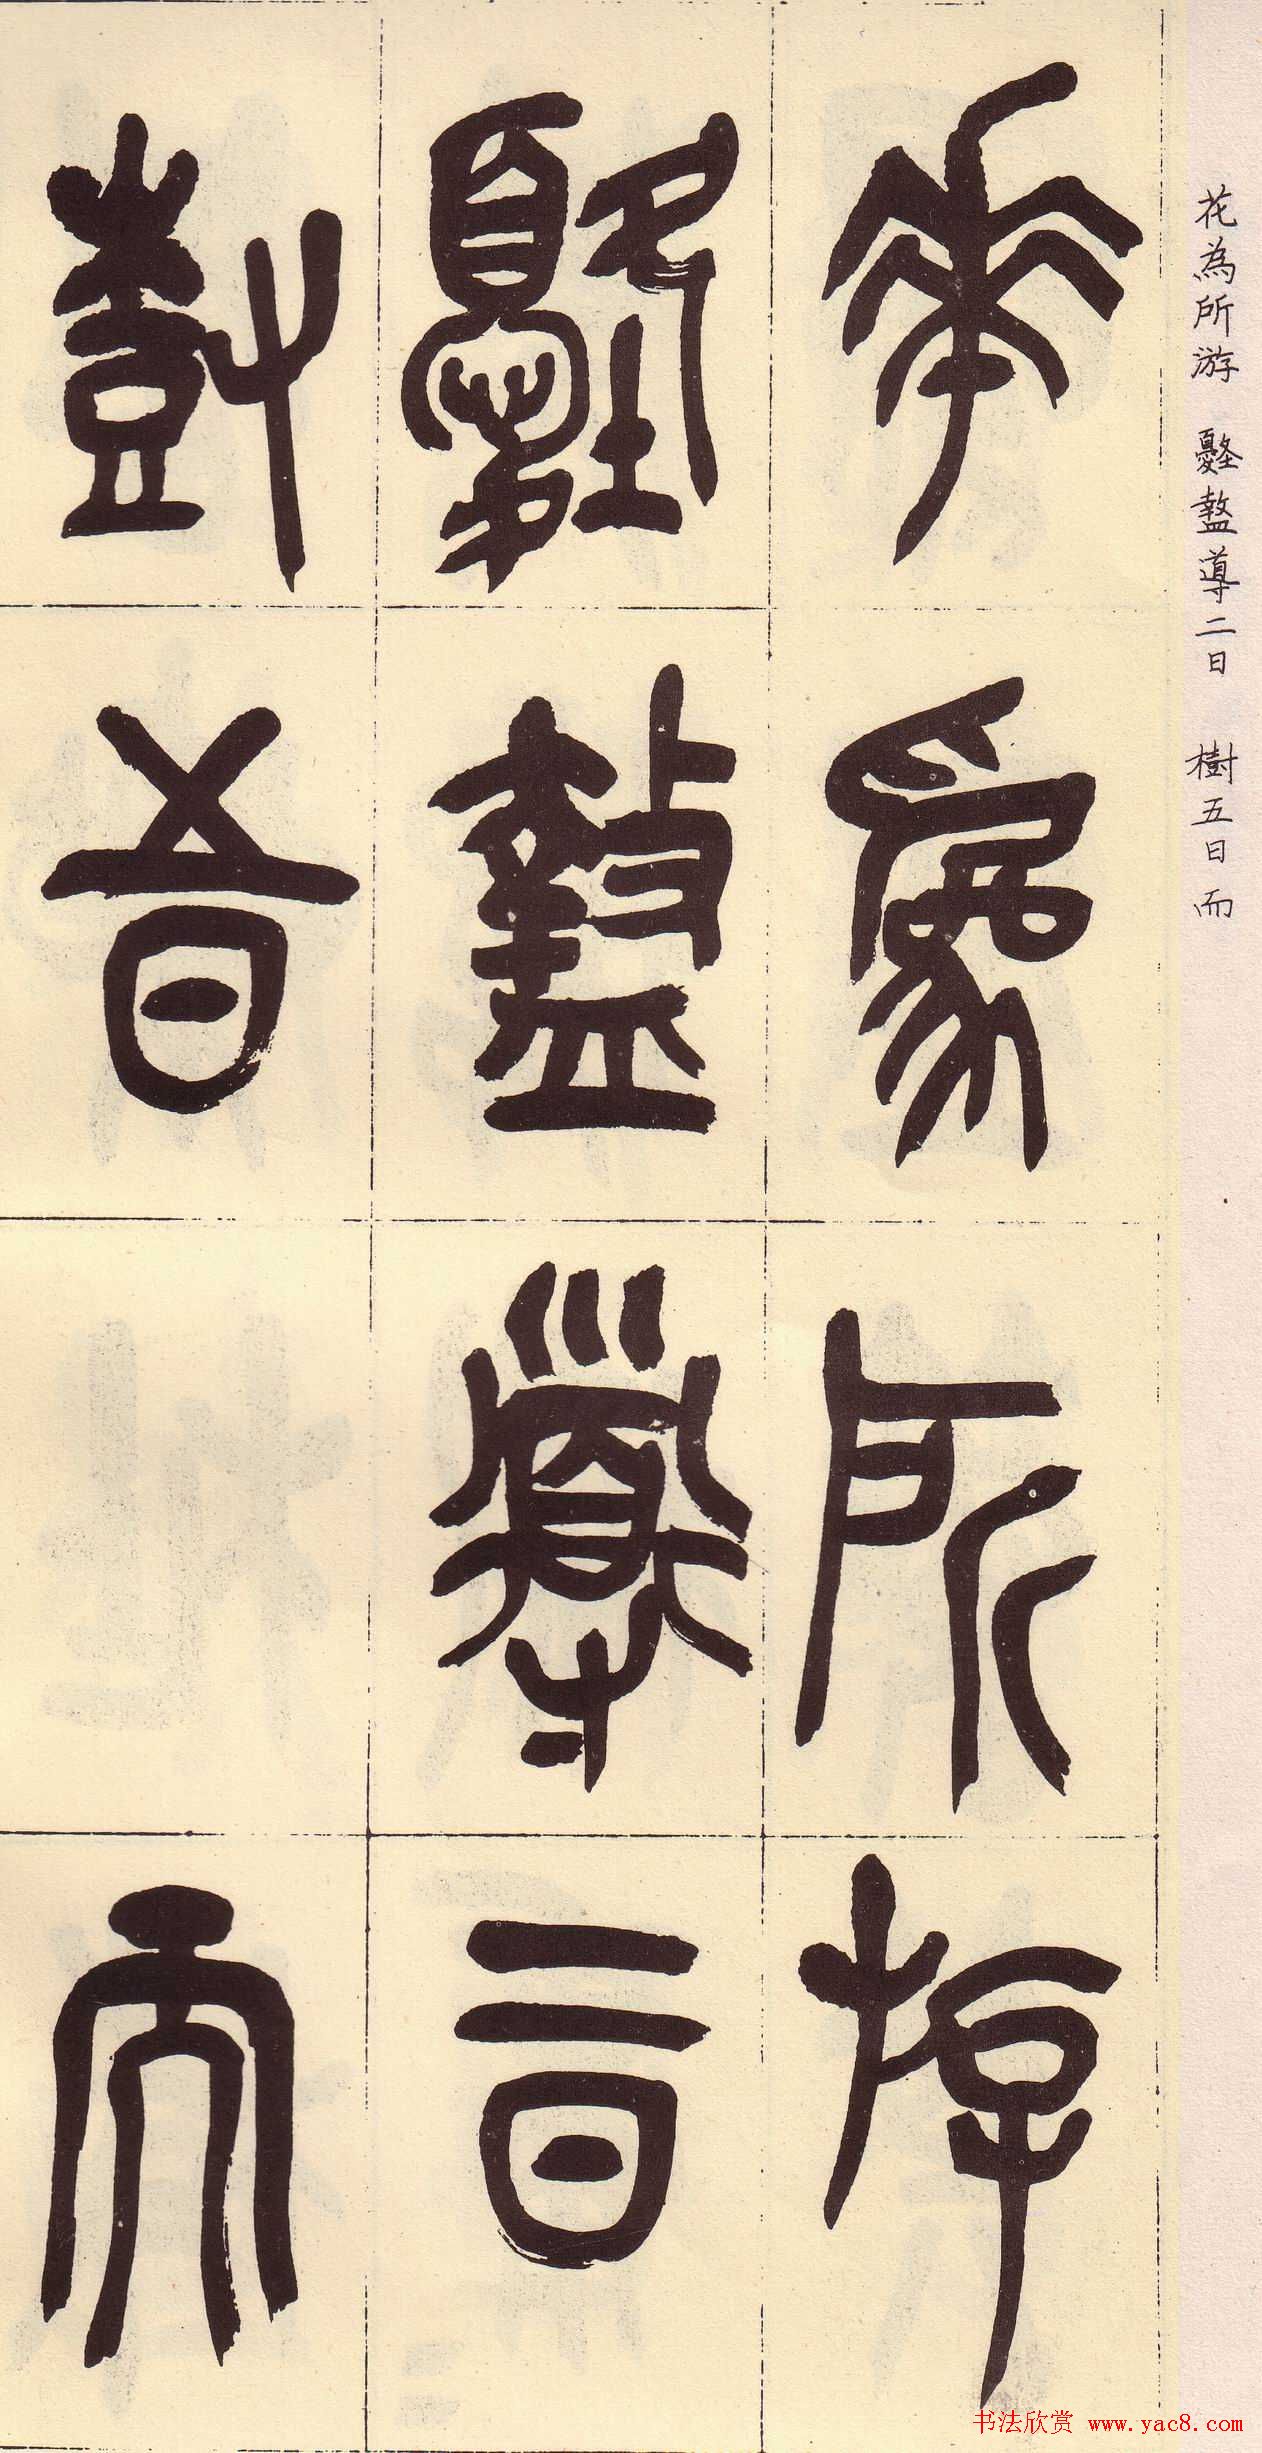 花為所游 盩導二日 樹五日而
華為所斿
盩導二日
尌五日而
书法欣赏 www.yac8.com